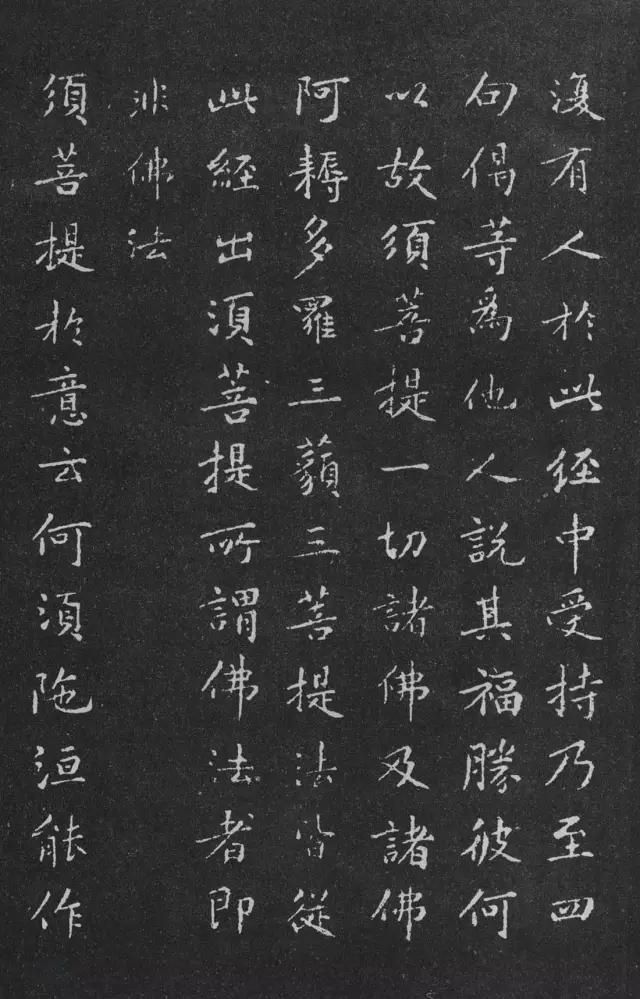 復有人於此經中受持乃至四
句偈等為他人說其福勝彼何
以故須菩提一切諸佛及諸佛
阿耨多羅三藐三菩提法皆從
此經出須菩提所謂佛法者即
非佛法
須菩提於意云何須陁洹能作